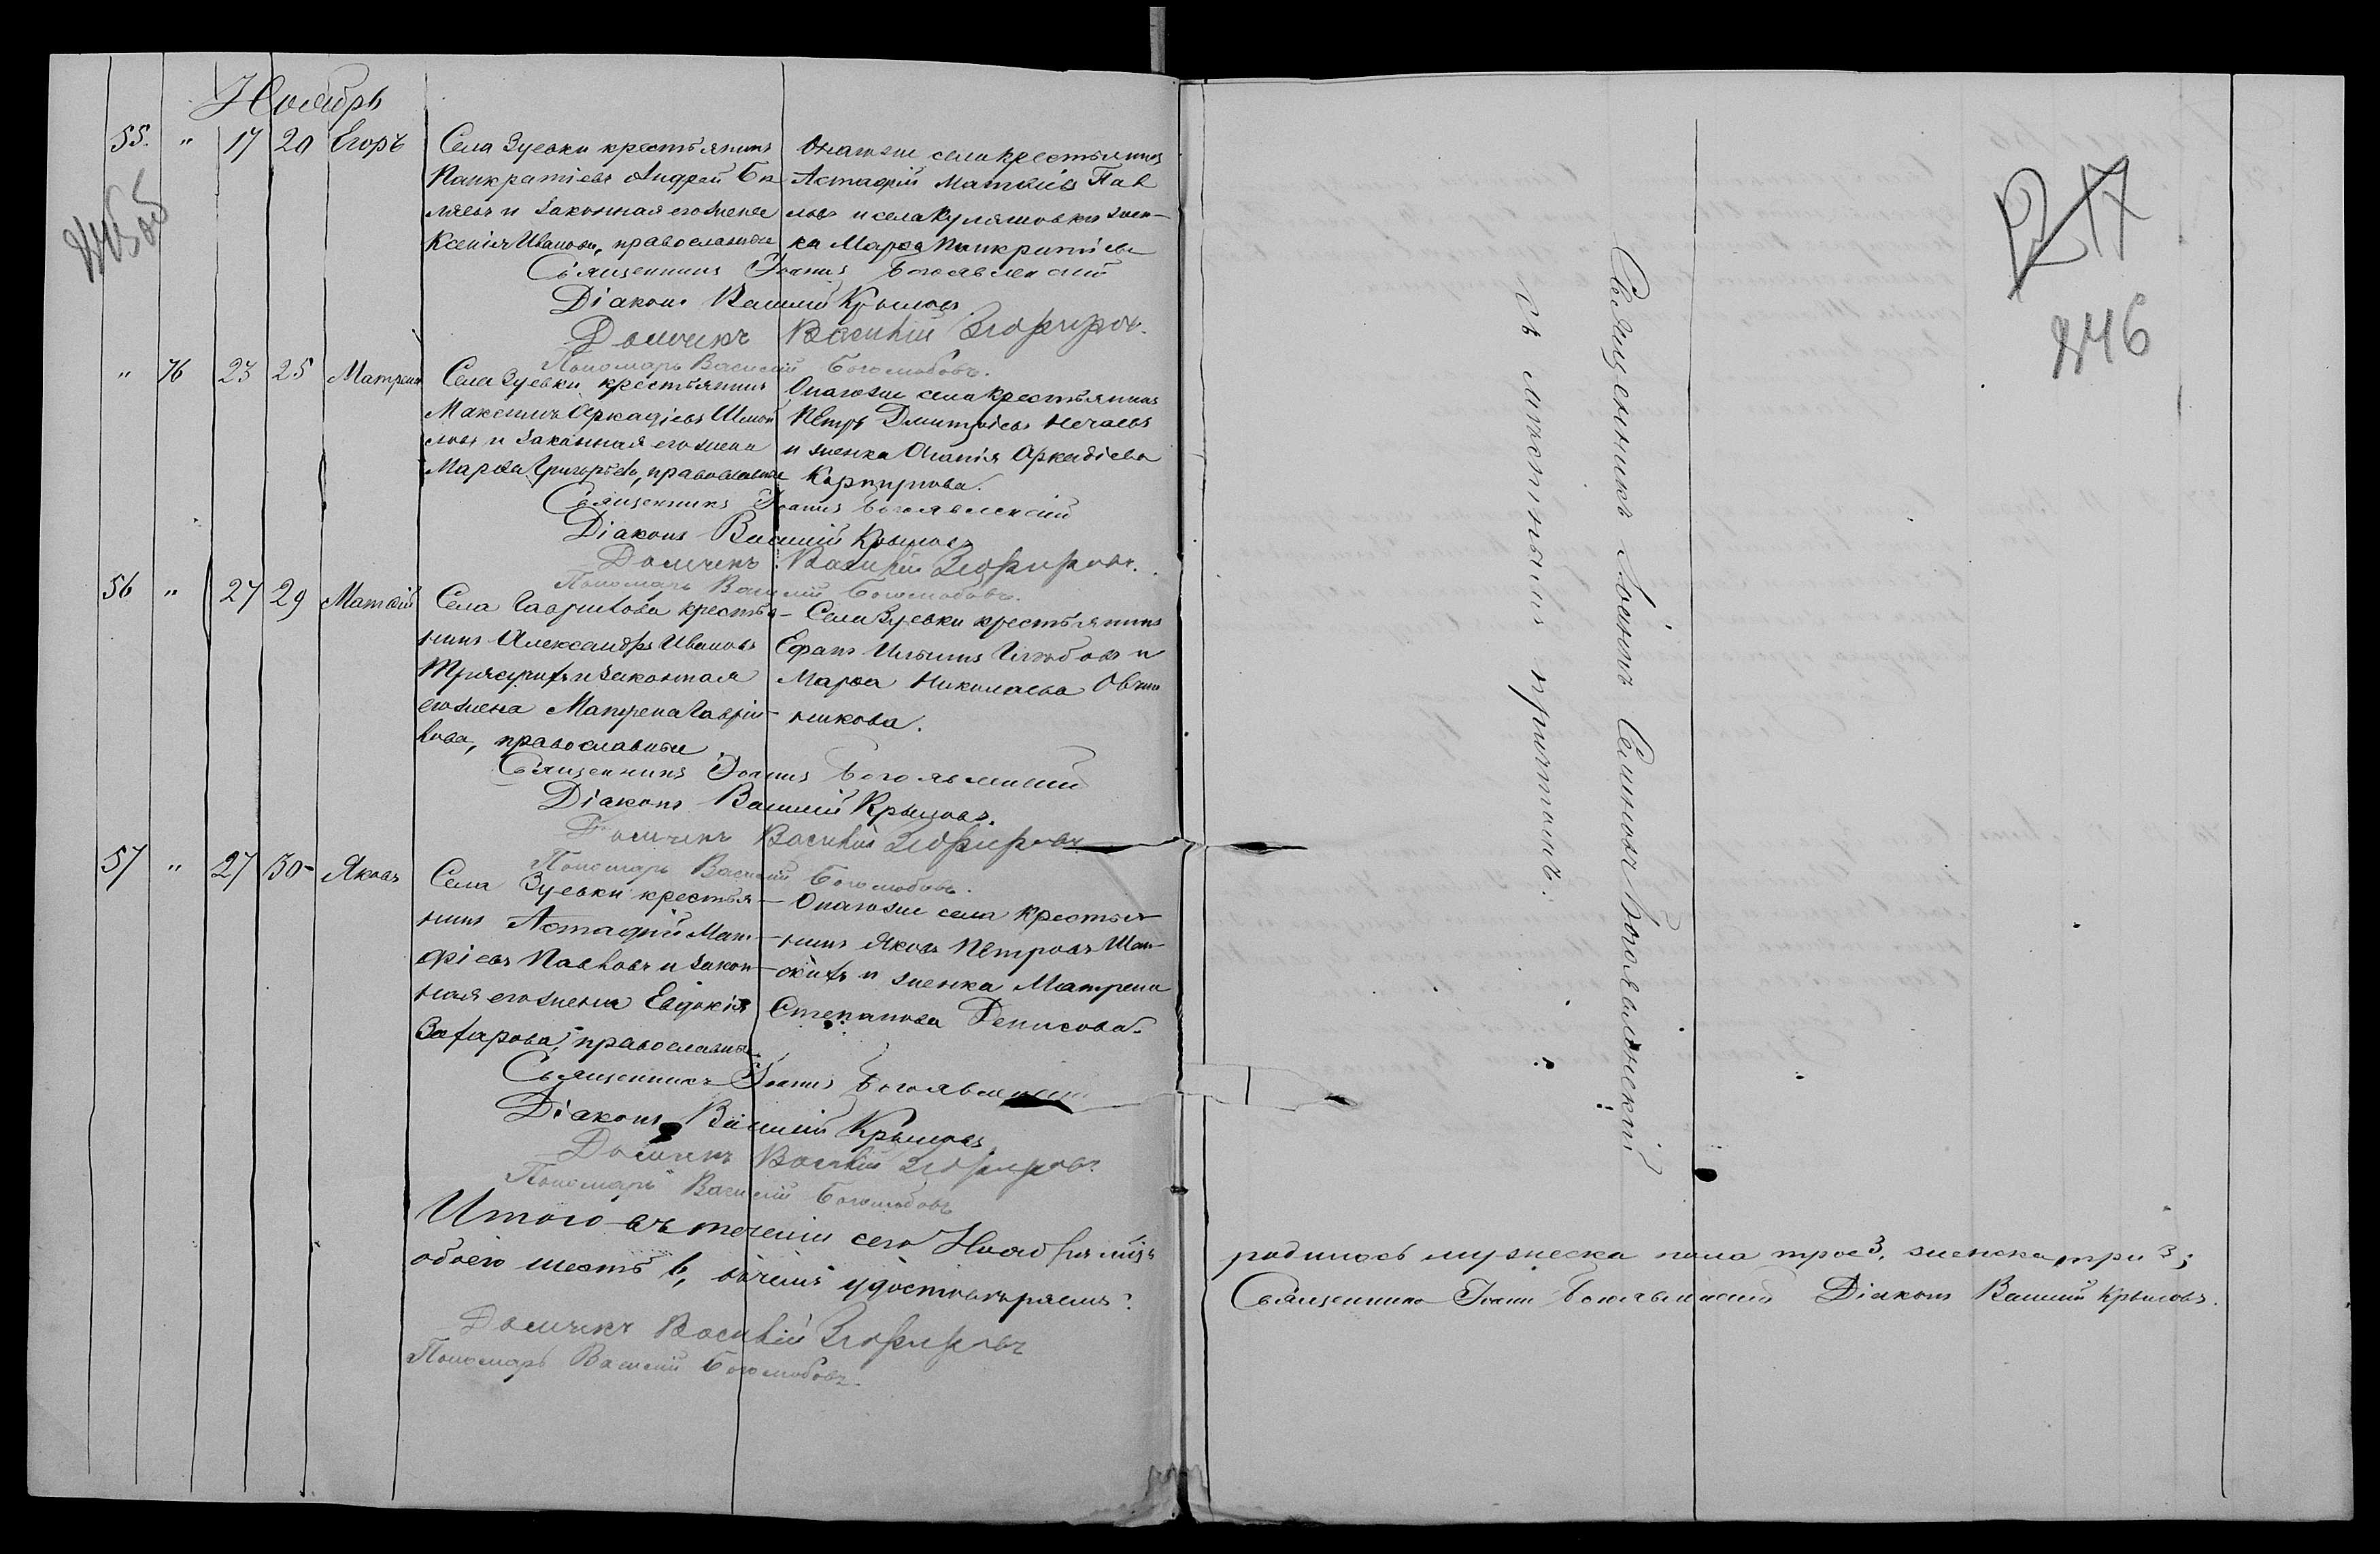 Ноябрь
55. " 17 20 Егоръ
Села Зуевки крестьянинъ
Панкратіевъ Андрей Бе
ляевъ и законная его жена
Ксенія Иванова, православные
Онагоже села крестьянинъ
Астафій Матвѣевъ Пав
ловъ и села Кулешовки жен-
ка Марѳа Панкратіева
Священникъ Іоаннъ Богоявленскій
Діаконъ Василій Крыловъ
Дьячекъ Василій Зефировъ.
Пономарь Василій Боголюбовъ.
" 76 23 25 Матрена
Села Зуевки крестьянинъ
Максимъ Аркадіевъ
ловъ и законная его жена
Марѳа Григорьева, православные
Онагоже села крестьянинъ
Петръ Дмитріевъ Нечаевъ
и женка Аркадіева
Священникъ Іоаннъ Богоявленскій
Діаконъ Василій Крыловъ
Дьячекъ Василій Зефировъ.
Пономарь Василій Боголюбовъ.
56 " 27 29 Матвѣй
Села Гаврилова крестья-
нинъ Александръ Ивановъ
и законная
его жена Матрена Гаври-
лова, православные
Села Зуевки крестьянинъ
Ильинъ и
Марѳа Николаева Овчин
никова.
Священникъ Іоаннъ Богоявленскій
Діаконъ Василій Крыловъ.
Дьячекъ Василій Зефировъ
Пономарь Василій Боголюбовъ.
57 " 27 30 Яковъ
Села Зуевки крестья-
нинъ Астафій Мат-
ѳіевъ Павловъ и закон-
ная его жена Евдокія
Захарова, православные
Онагоже села крестья-
нинъ Яковъ Петровъ
и женка Матрена
Степанова Денисова.
Священникъ Іоаннъ Богоявленскій
Діаконъ Василій Крыловъ
Дьячекъ Василій Зефировъ
Пономарь Василій Боголюбовъ
Итого въ теченіи сего Ноября мѣсяца
обоего шесть 6, въ чемъ удостовѣряемъ:
Дьячекъ Василій Зефировъ
Пономарь Василій Боголюбовъ.
Священникъ Іоаннъ Богоявленскій
съ причтомъ.
217
846
родилось мужеска пола трое 3, женска три 3;
Священникъ Іоаннъ Богоявленскій Діаконъ Василій Крыловъ.